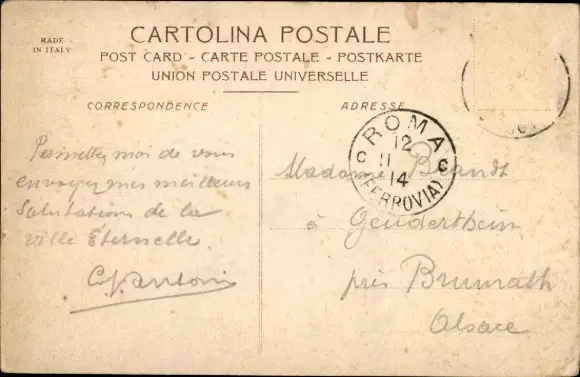 MADE
IN ITALY
CARTOLINA POSTALE
POST CARD - CARTE POSTALE - POSTKARTE
UNION POSTALE UNIVERSELLE
CORRESPONDENCE
ADRESSE
Permettez moi de vous
envoyer mes meilleurs
salutations de la
ville Éternelle.
ROMA
12
11
14
(FERROVIA)
C
Madame Brandt
à Geudertheim
près Brumath
Alsace